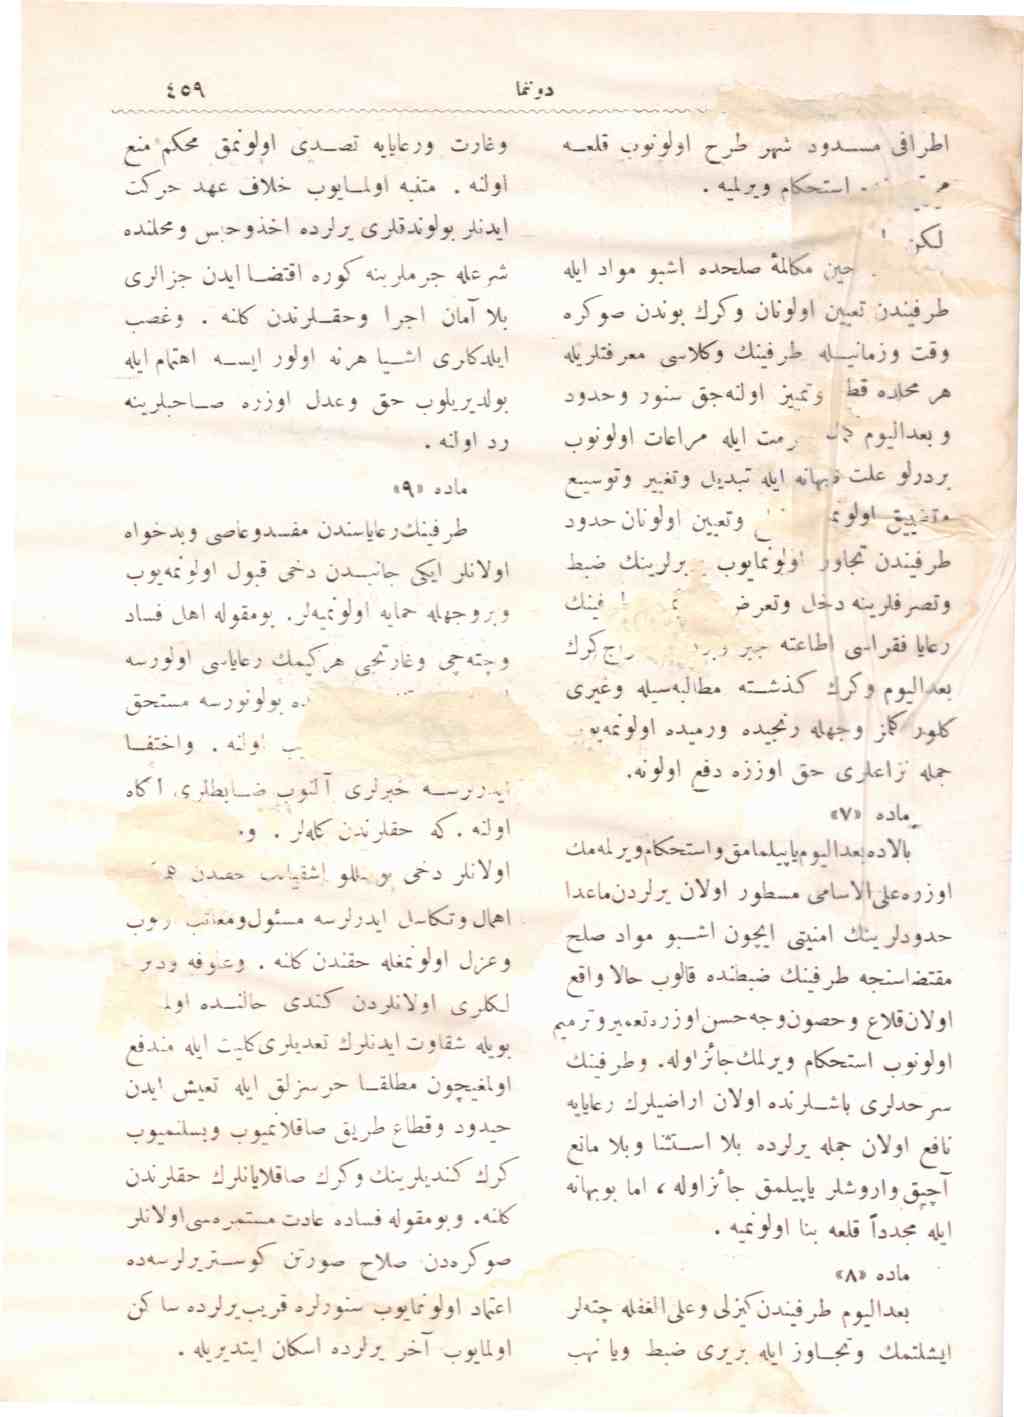 دوننما
٤٥٩
اطرافی مسدود شهر طرح اولونوب قلعه
استحكام ويرلميه .
لكن
حين مكالمهٔ صلحده اشبو مواد ايله
طرفيندن تعيين اولونان وكرك بوندن صوكره
وقت وزمانيله طرفينك وكلاسی معرفتلريله
هر محلده قطع وتمييز اولنه جق سنور وحدود
وبعداليوم ايله مراعات اولونوب
بردرلو علت وبهانه ايله تبديل وتغيير وتوسيع
وتضييق وتعيين اولونان حدود
طرفيندن تجاوز اولونمايوب بربرلرينك ضبط
وتصرفلرينه دخل وتعرض
رعايا فقراسی اطاعته جبر
بعداليوم وكرك كذشته مطالبه سيله وغيری
كلور كلمز وجهله رنجيده ورميده اولونمه يوب
جمله نزاعلری حق اوزره دفع اولونه.
ماده «٧»
بالاده بعداليوم ياپيلمامق واستحكام ويرلمه مك
اوزره علی الاسامی مسطور اولان يرلردن ماعدا
حدودلرينك امنيتی ايچون اشبو مواد صلح
مقتضاسنجه طرفينك ضبطنده قالوب حالا واقع
اولان قلاع وحصون وجه حسن اوزره تعمير وترميم
اولونوب استحكام ويرلمك جائز اوله. وطرفينك
سرحدلری باشلرنده اولان اراضيلرك رعايايه
نافع اولان جمله يرلرده بلا استثنا وبلا مانع
آچيق واروشلر ياپيلمق جائز اوله ، اما بوبهانه
ايله مجدداً قلعه بنا اولونميه .
ماده «٨»
بعداليوم طرفيندن كيزلی وعلی الغفله چته لر
ايشلتمك وتجاوز ايله بربری ضبط ويا نهب
وغارت ورعايايه تصدی اولونمق محكم منع
اولنه . متنبه اولمايوب خلاف عهد حركت
ايدنلر بولوندقلری يرلرده اخذ وحبس ومحلنده
شرعله جرملرينه كوره اقتضا ايدن جزالری
بلا آمان اجرا وحقلرندن كلنه . وغصب
ايلدكلری اشيا هرنه اولور ايسه اهتمام ايله
بولديريلوب حق وعدل اوزره صاحبلرينه
رد اولنه .
ماده «٩»
طرفينك رعاياسندن مفسد وعاصی وبدخواه
اولانلر ايكی جانبدن دخی قبول اولونمه يوب
وبروجهله حمايه اولونميه لر. بومقوله اهل فساد
وچته جی وغارتجی هركيمك رعاياسی اولورسه
بولونورسه مستحق
اولنه . واختفا
ايدرلرسه خبرلری آلنوب ضابطلری آكاه
اولنه . كه حقلرندن كله لر .
اولانلر دخی اشقيانك حقندن
اهمال وتكاسل ايدرلرسه مسئول ومعاتب اولوب
وعزل اولونمغله حقندن كلنه . وعلوفه
لكلری اولانلردن كندی حالنده
بويله شقاوت ايدنلرك تعديلری كليت ايله مندفع
اولمغيچون مطلقا حرسزلق ايله تعيش ايدن
حيدود وقطاع طريق صاقلانميوب وبسلنميوب
كرك كنديلرينك وكرك صاقلايانلرك حقلرندن
كلنه. وبومقوله فساده عادت مستمره سی اولانلر
صوكره دن صلاح صورتن كوستريرلرسه ده
اعتماد اولونمايوب سنورلره قريب يرلرده ساكن
اولمايوب آخر يرلرده اسكان ايتديريله .